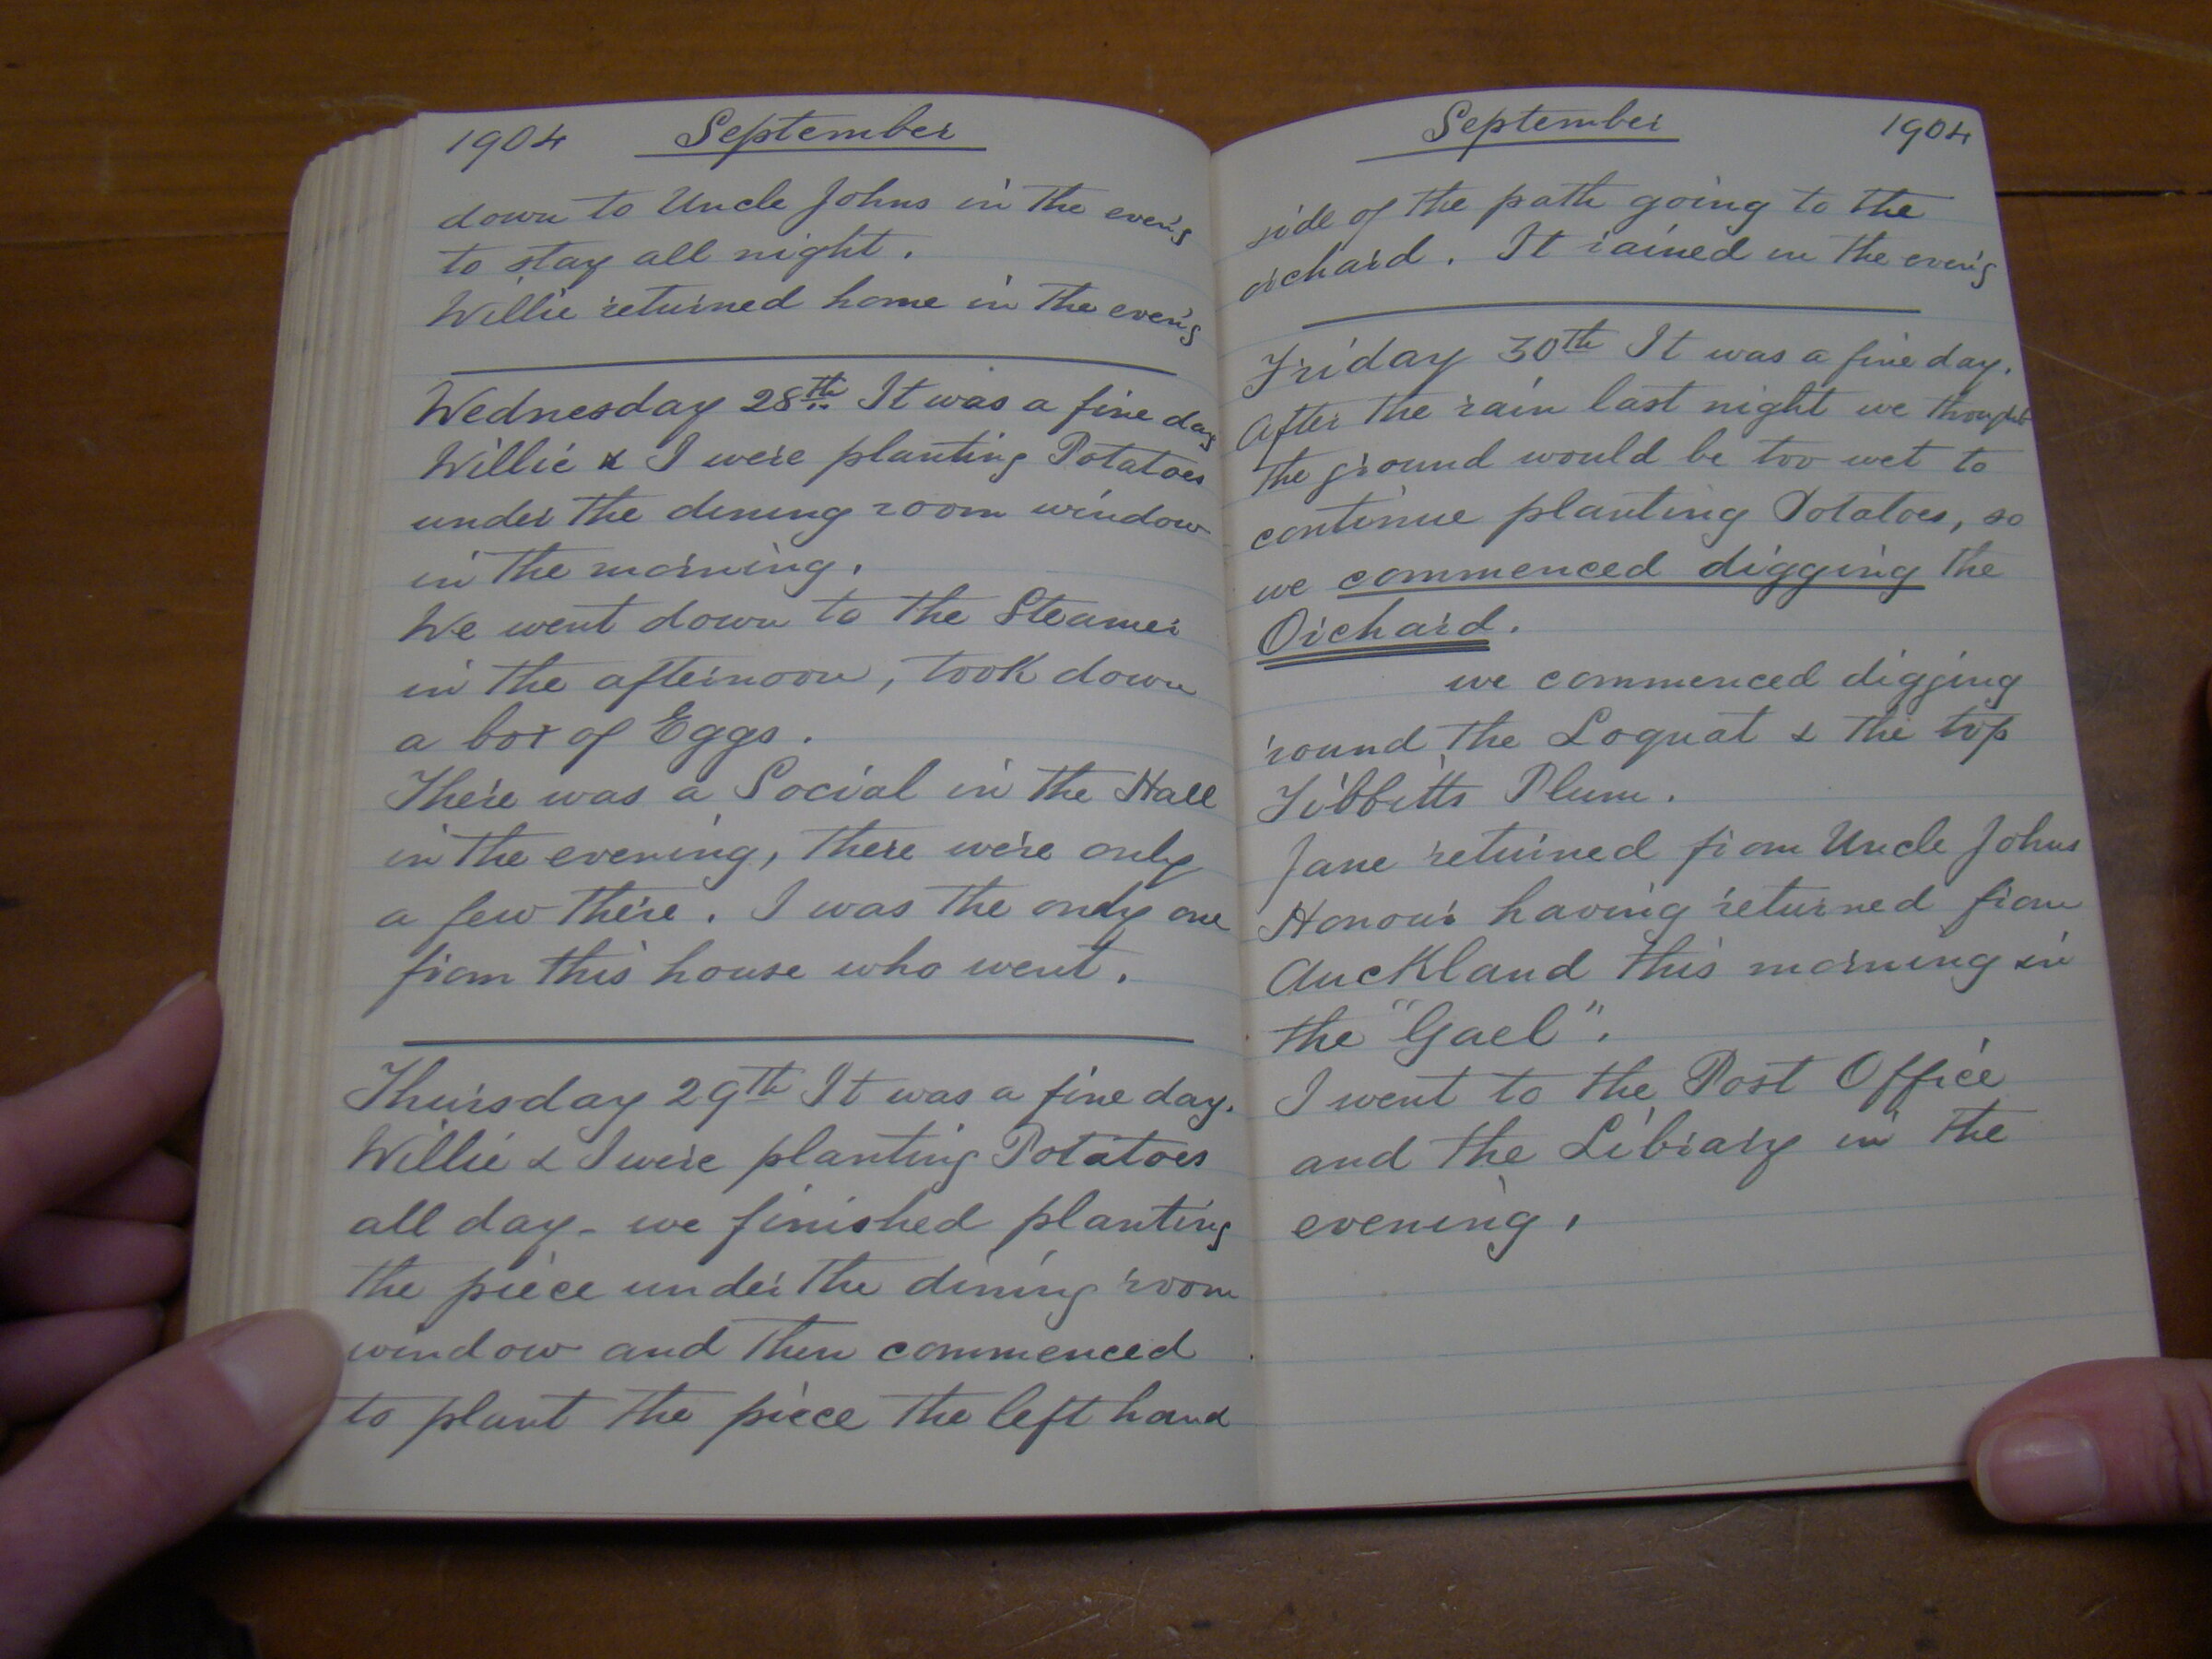 1904 September
down to Uncle Johns in the even'g
to stay all night.
Willie returned home in the even'g
Wednesday 28th It was a fine day
Willie & I were planting Potatoes
under the dining room window
in the morning.
We went down to the Steamer
in the afternoon, took down
a box of Eggs.
There was a Social in the Hall
in the evening, there were only
a few there. I was the only one
from this house who went.
Thursday 29th It was a fine day.
Willie & I were planting Potatoes
all day - we finished planting
the piece under the dining room
window and then commenced
to plant the piece the left hand
September 1904
side of the path going to the
orchard. It rained in the even'g
Friday 30th It was a fine day.
After the rain last night we thought
the ground would be too wet to
continue planting Potatoes, so
we commenced digging the
Orchard.
we commenced digging
round the Loquat & the top
Tibbitts Plum.
Jane returned from Uncle Johns
Honour having returned from
Auckland this morning in
the "Gael".
I went to the Post Office
and the Library in the
evening.